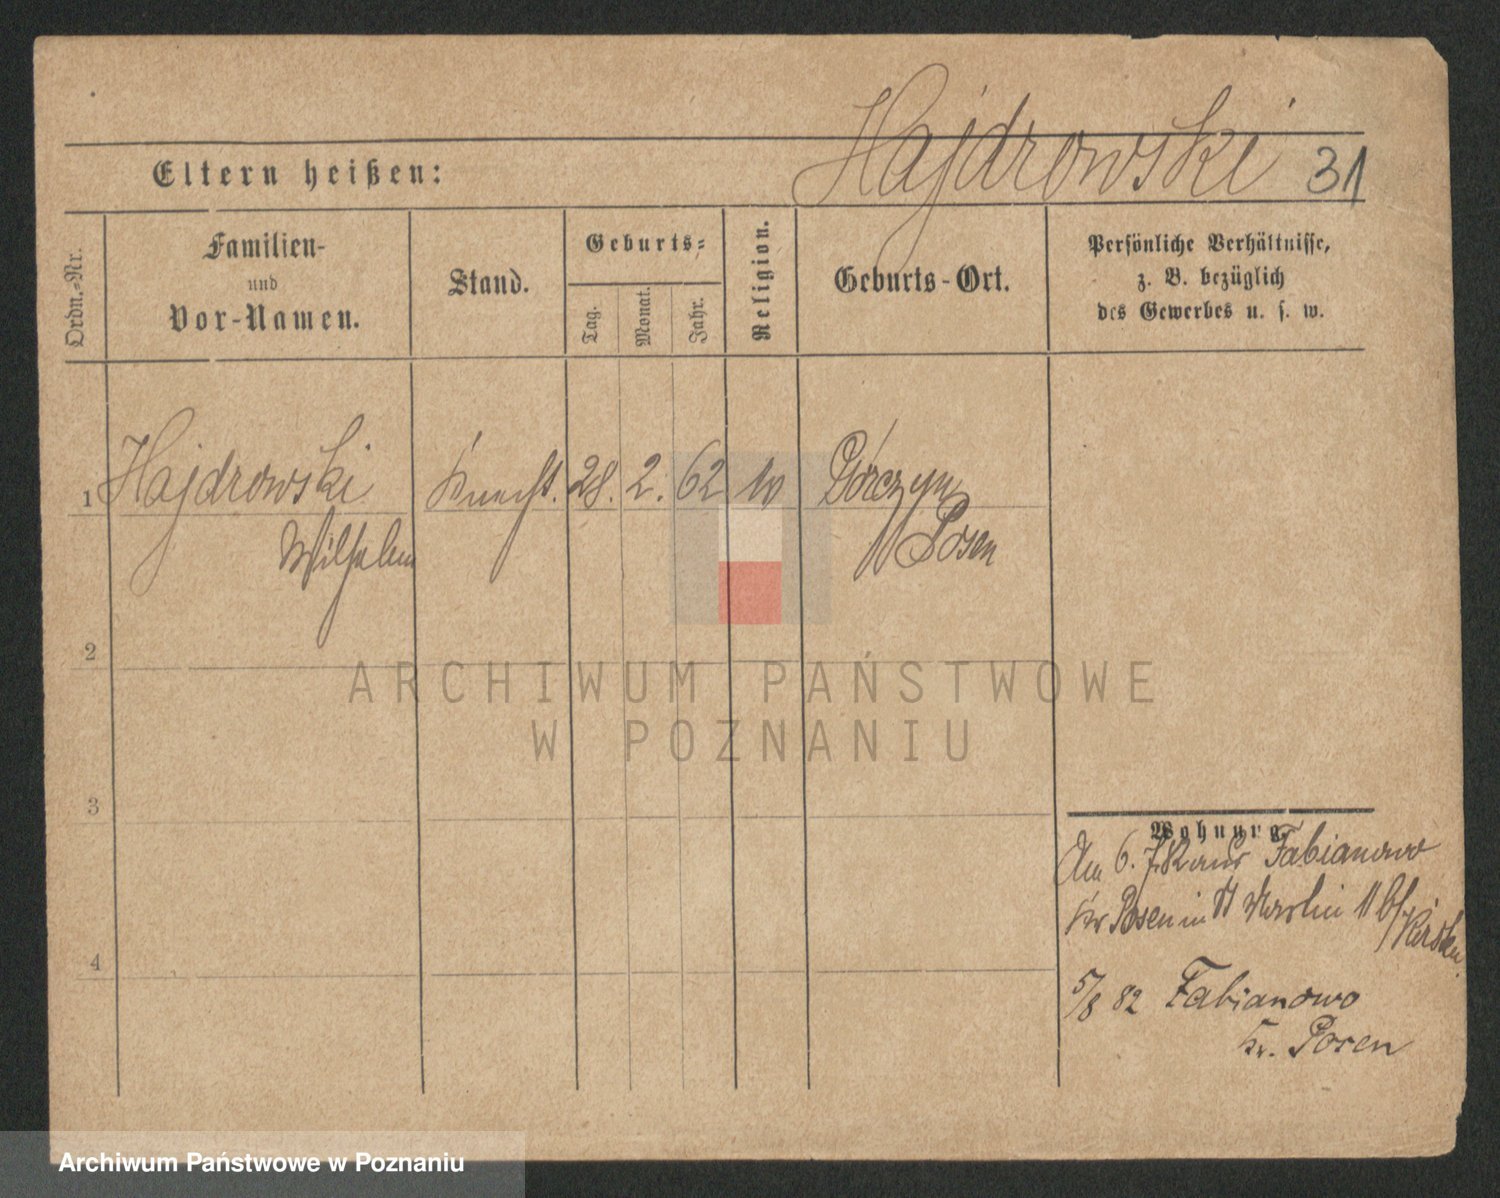 Hajdrowski 31
Eltern heißen:
Ordn.-Nr.
Familien-
und
Vor-Namen.
Stand.
Geburts-
Tag.
Monat.
Jahr.
Religion.
Geburts-Ort.
Persönliche Verhältnisse,
z. B. bezüglich
des Gewerbes u. s. w.
1 Hajdrowski Knecht. 28. 2. 62 Górczyn
Wilhelm Posen
2
3
4
Wohnung
Am 6. Fabianowo
Kr Posen in
5/8 82 Fabianowo
Kr. Posen
ARCHIWUM PAŃSTWOWE
W POZNANIU
Archiwum Państwowe w Poznaniu